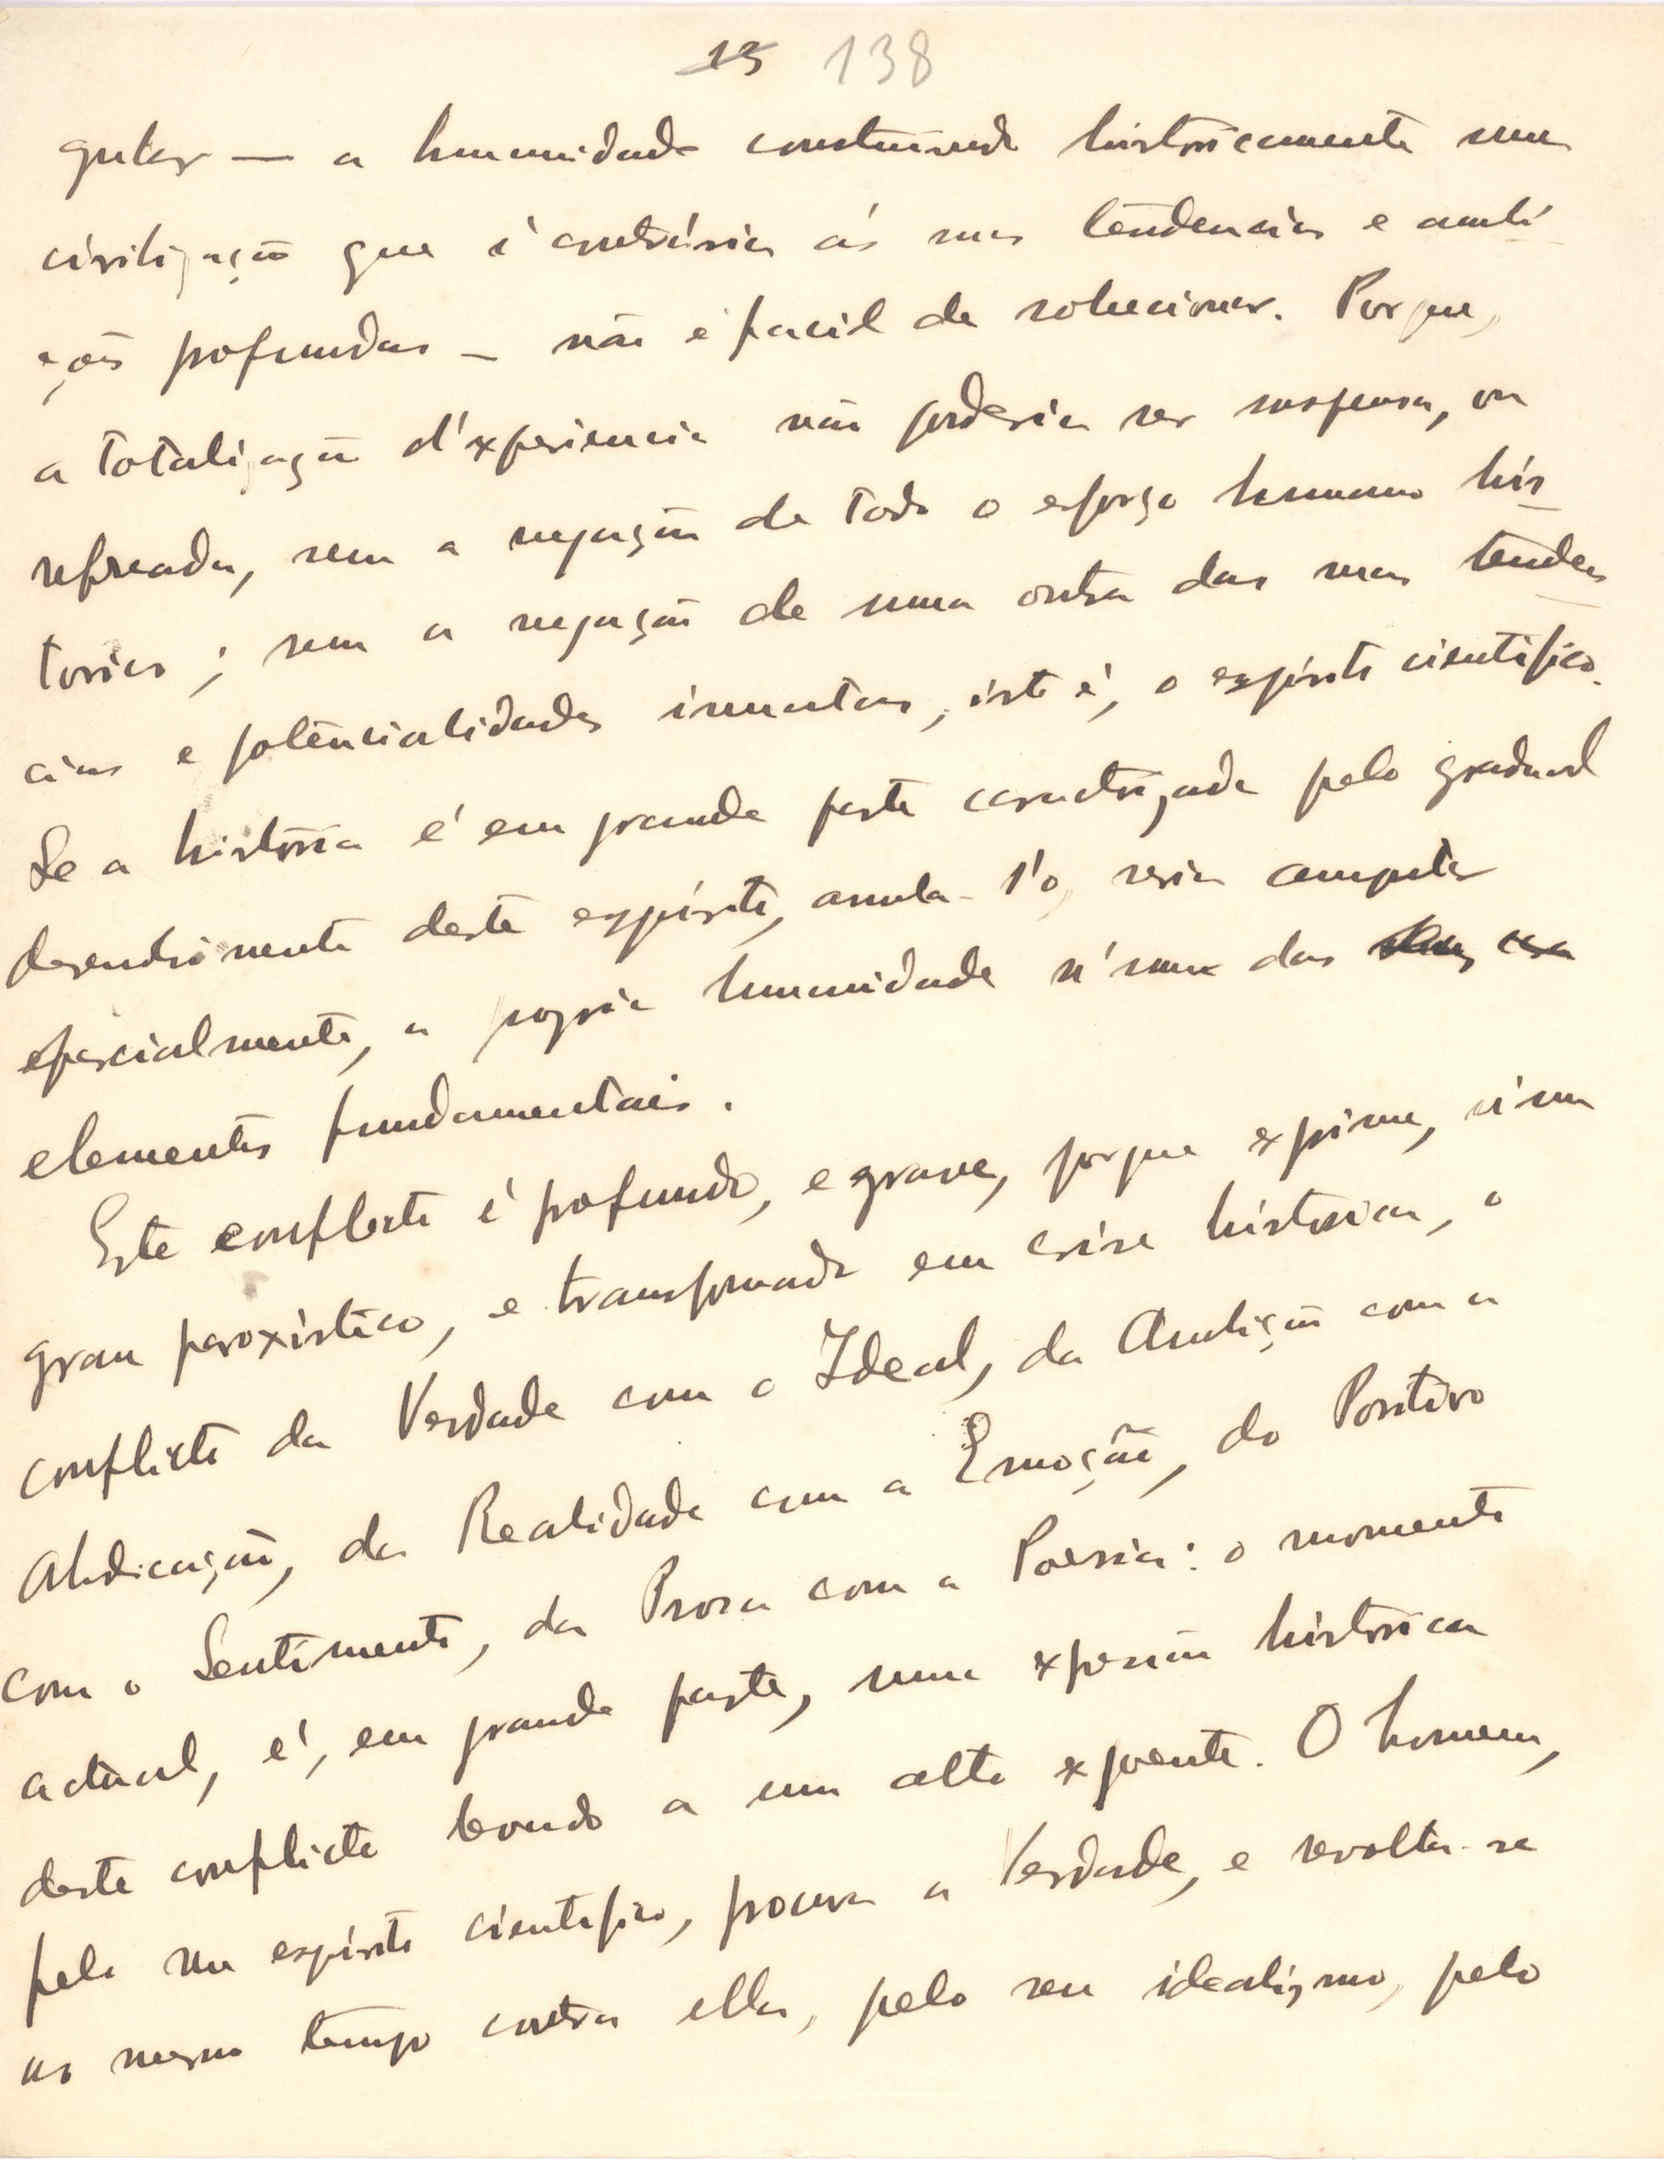 13 138
gular — a humanidade construindo historicamente uma
civilização que é contrária ás suas tendencias e ambi-
ções profundas — não é facil de solucionar. Porque,
a totalização d'experiencia não poderia ser suspensa, ou
refreada, sem a negação de todo o esforço humano his-
torico; sem a negação de uma outra das suas tenden-
cias e potencialidades innatas, isto é, o espirito cientifico.
Se a historia é em grande parte caractrizada pelo gradual
desenvolvimento deste espirito, anula-l'o, seria amputar
especialmente, a propria humanidade n'uma das suas
elementos fundamentais.
Este conflicto é profundo, e grave, porque exprime, n'um
grau paroxistico, e transformado em crise historica, o
conflicto da Verdade com o Ideal, da Ambição com a
Abdicação, da Realidade com a Emoção, do Positivo
com o Sentimento, da Prosa com a Poesia: o momento
actual, é, em grande parte, uma expressão historica
deste conflicto levado a um alto expoente. O homem,
pelo seu espirito cientifico, procura a Verdade, e revolta-se
ao mesmo tempo contra ella, pelo seu idealismo, pelo